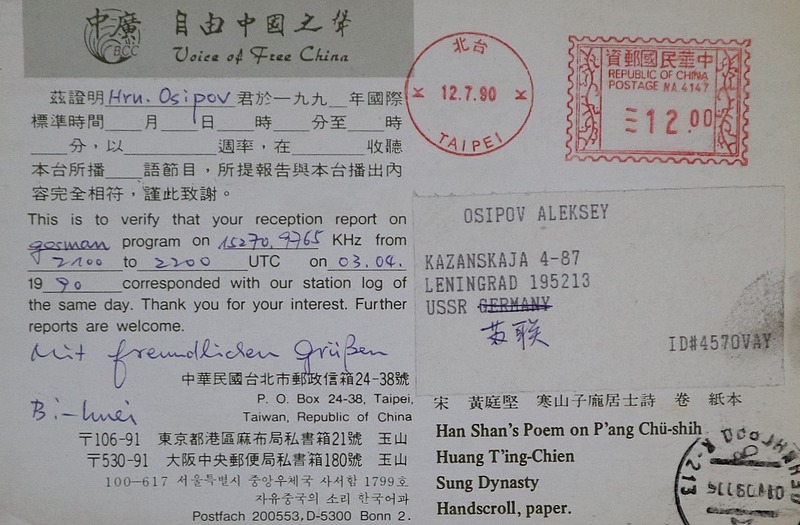 中廣
BCC
自由中國之聲
Voice of Free China
茲證明Hrn. Osipov君於一九九__年國際
標準時間____月____日____時____分至____時
____分，以________週率，在________收聽
本台所播____語節目，所提報告與本台播出內
容完全相符，謹此致謝。
This is to verify that your reception report on
german program on 15270, 9765 KHz from
2100 to 2200 UTC on 03.04.
1990 corresponded with our station log of
the same day. Thank you for your interest. Further
reports are welcome.
Mit freundlichen Grüßen
Bi-huei
中華民國台北市郵政信箱24-38號
P. O. Box 24-38, Taipei,
Taiwan, Republic of China
〒106-91 東京都港區麻布局私書箱21號 玉山
〒530-91 大阪中央郵便局私書箱180號 玉山
100-617 서울특별시 중앙우체국 사서함 1799호
자유중국의 소리 한국어과
Postfach 200553, D-5300 Bonn 2.
北台
12.7.90
TAIPEI
資郵國民華中
REPUBLIC OF CHINA
POSTAGE NA.4147
12.00
OSIPOV ALEKSEY
KAZANSKAJA 4-87
LENINGRAD 195213
USSR GERMANY
苏联
ID#4570VAY
宋 黃庭堅 寒山子龐居士詩 卷 紙本
Han Shan's Poem on P'ang Chü-shih
Huang T'ing-Chien
Sung Dynasty
Handscroll, paper.